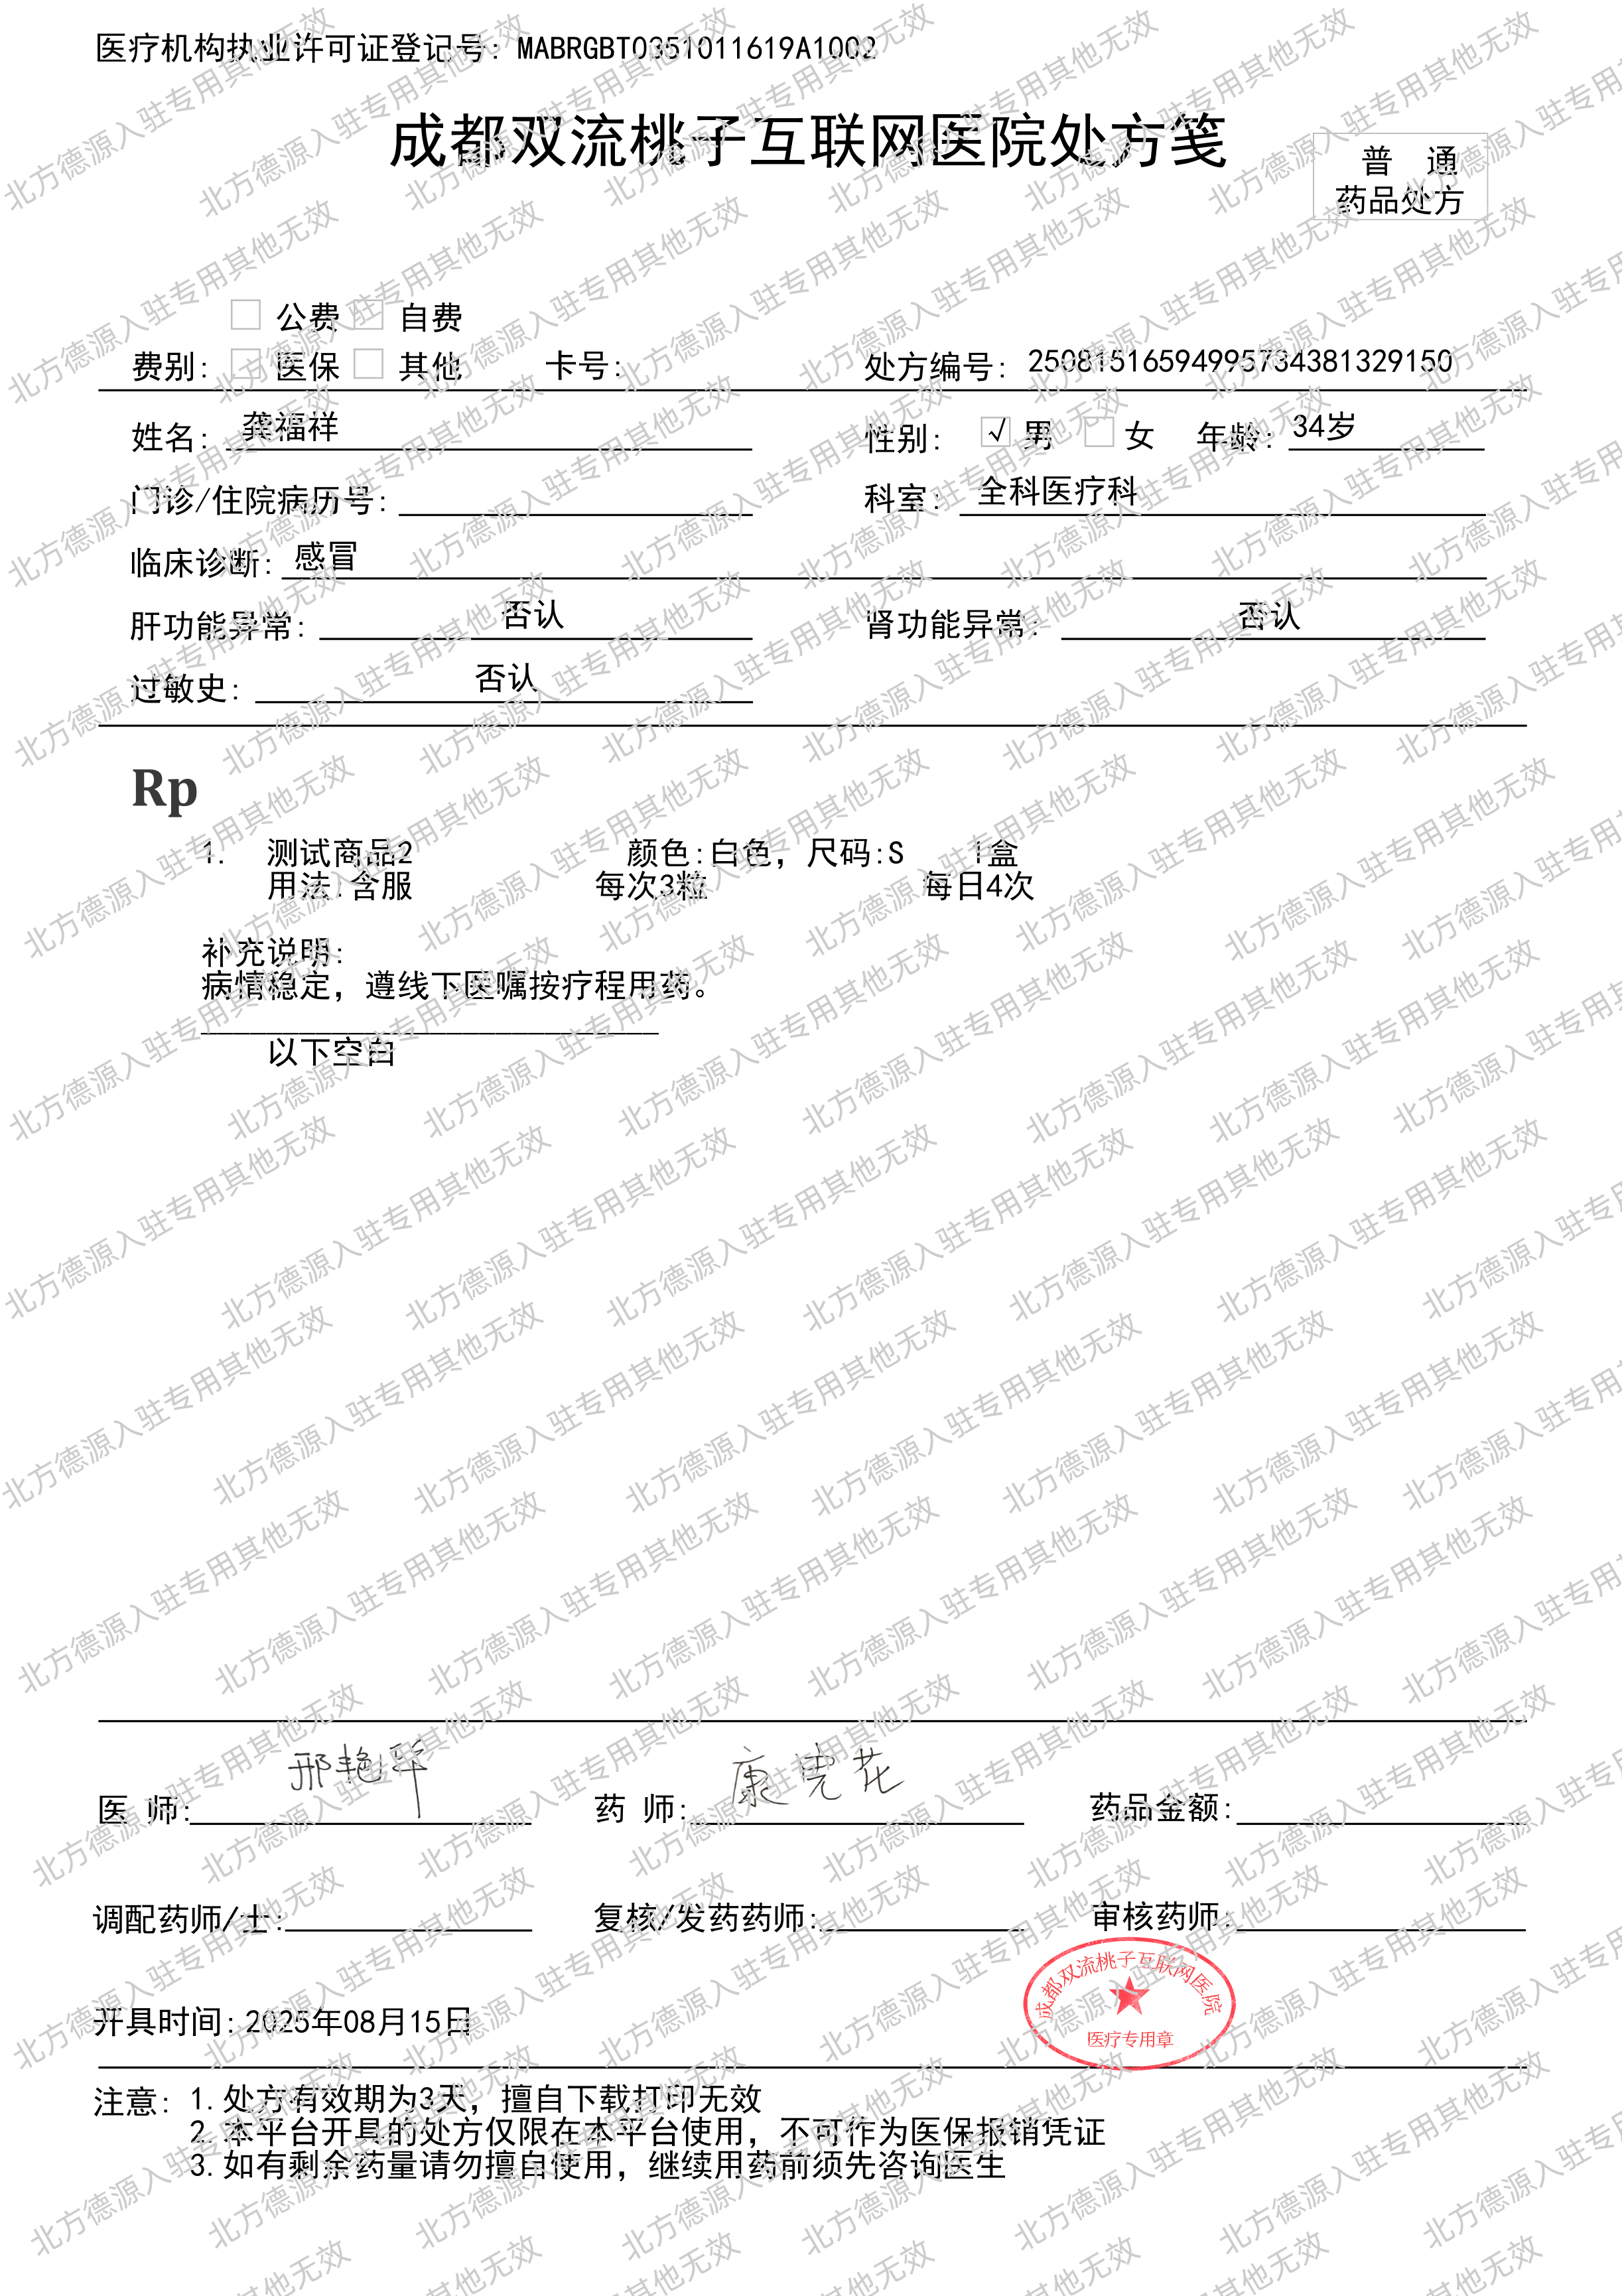 医疗机构执业许可证登记号: MABRGBT0351011619A1002
成都双流桃子互联网医院处方笺
普 通
药品处方
公费 自费
费别: 医保 其他 卡号: 处方编号: 25081516594995734381329150
姓名: 龚福祥 性别: √ 男 女 年龄: 34岁
门诊/住院病历号: 科室: 全科医疗科
临床诊断: 感冒
肝功能异常: 否认 肾功能异常: 否认
过敏史: 否认
Rp
1. 测试商品2 颜色:白色, 尺码:S 1盒
用法:含服 每次3粒 每日4次
补充说明:
病情稳定, 遵线下医嘱按疗程用药。
以下空白
医 师: 邢艳华 药 师: 康 花 药品金额:
调配药师/士: 复核/发药药师: 审核药师:
成都双流桃子互联网医院
医疗专用章
开具时间: 2025年08月15日
注意: 1.处方有效期为3天, 擅自下载打印无效
2.本平台开具的处方仅限在本平台使用, 不可作为医保报销凭证
3.如有剩余药量请勿擅自使用, 继续用药前须先咨询医生
北方德源入驻专用其他无效